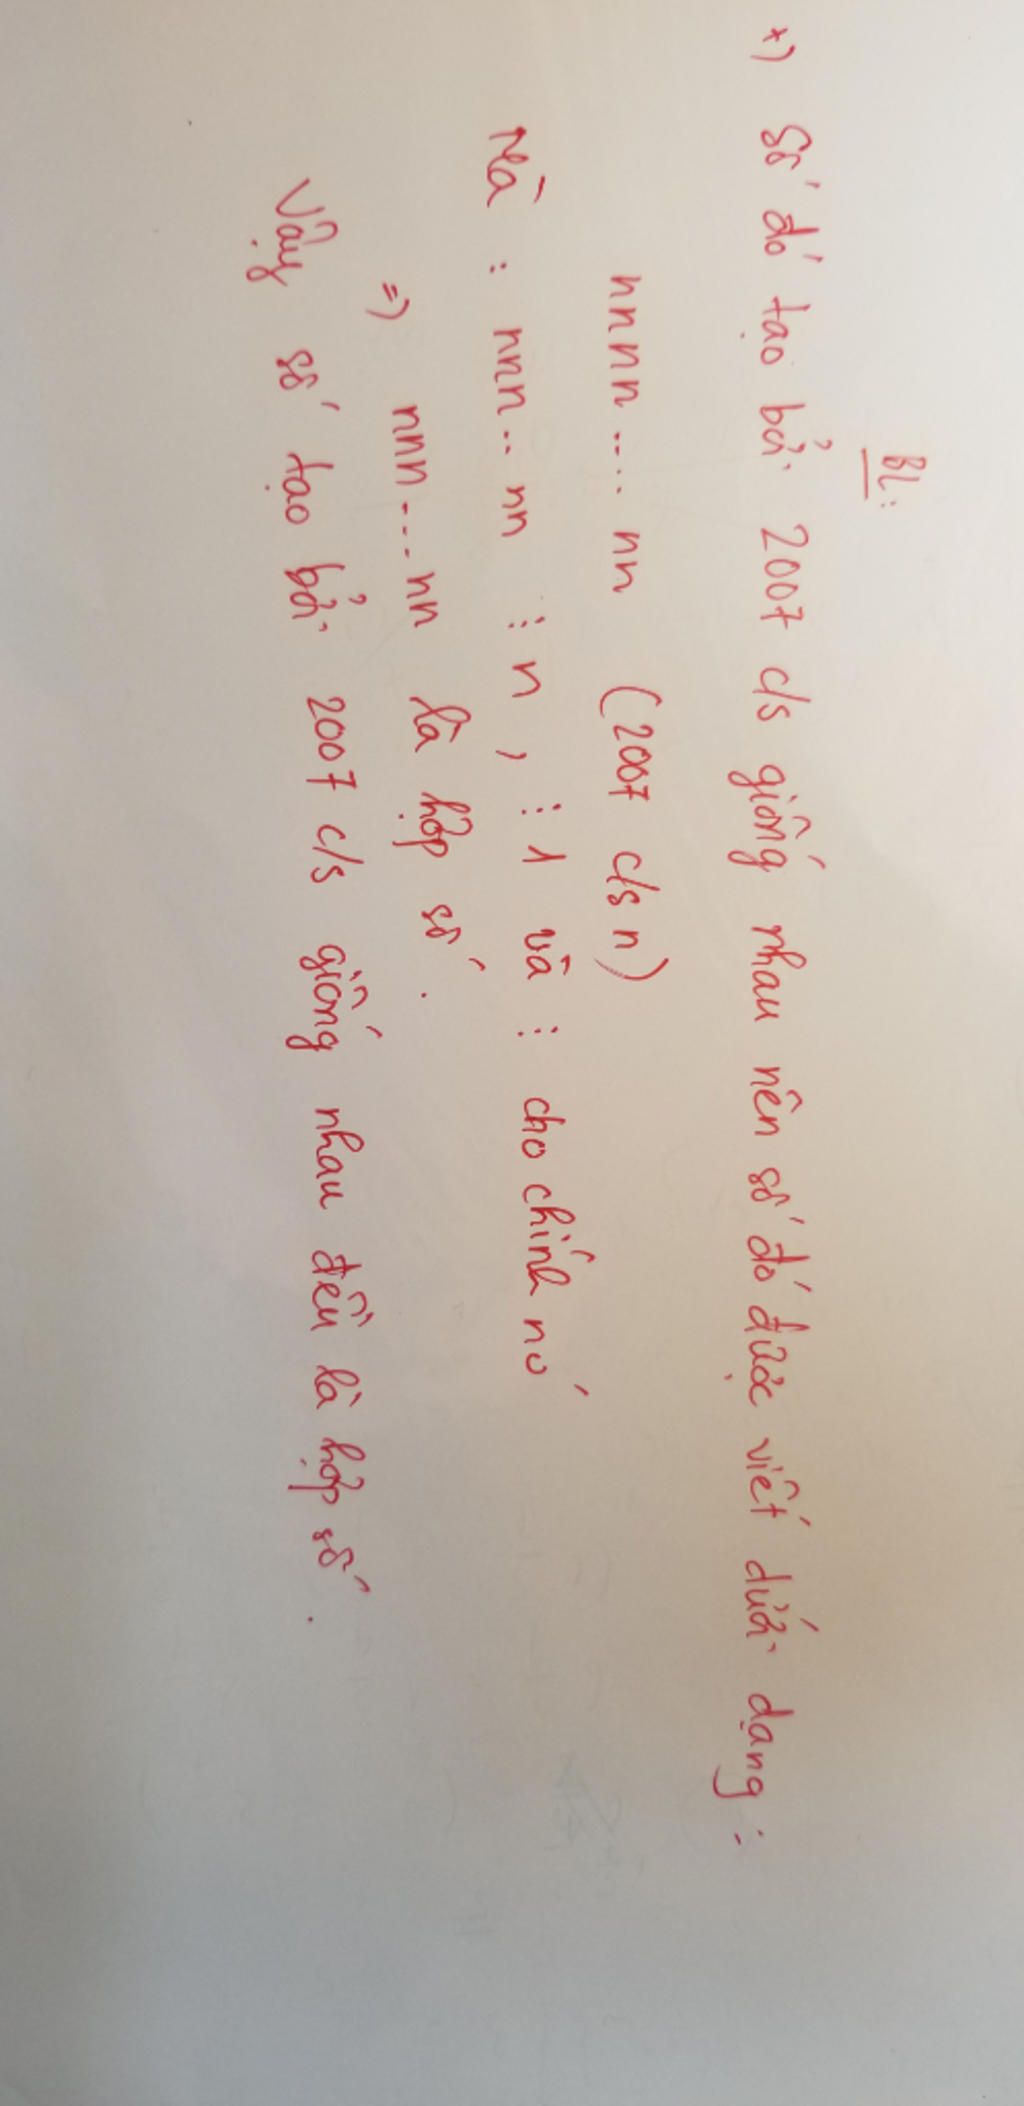 BL:
+) Số đó tạo bởi 2007 c/s giống nhau nên số đó được viết dưới dạng :
nnnn .... nn (2007 c/s n)
Mà : nnn .. nn ⋮ n , ⋮ 1 và ⋮ cho chính nó
=) nnn ... nn là hợp số .
Vậy số tạo bởi 2007 c/s giống nhau đều là hợp số .